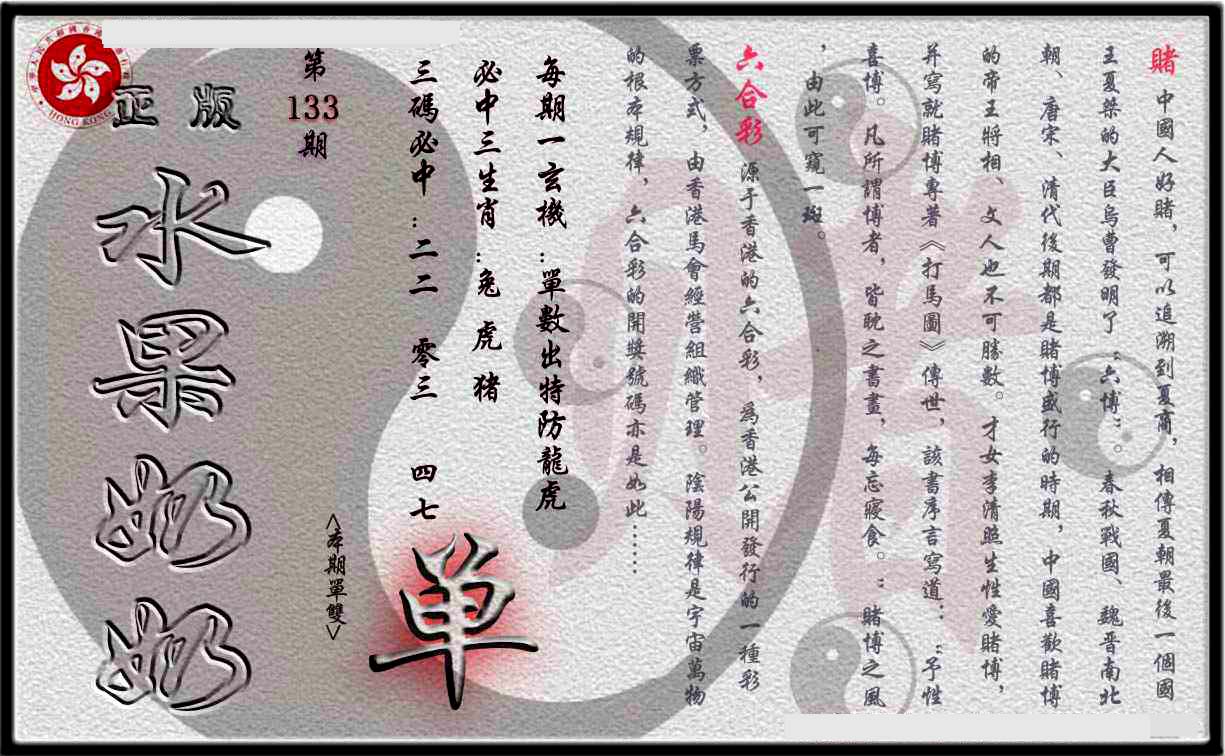 賭 中國人好賭，可以追溯到夏商，相傳夏朝最後一個國
王夏桀的大臣烏曹發明了“六博”。春秋戰國、魏晋南北
朝、唐宋、清代後期都是賭博盛行的時期，中國喜歡賭博
的帝王將相、文人也不可勝數。才女李清照生性愛賭博，
并寫就賭博專著《打馬圖》傳世，該書序言寫道：“予性
喜博。凡所謂博者，皆耽之書畫，每忘寢食。”賭博之風
，由此可窺一斑。
六合彩 源于香港的六合彩，為香港公開發行的一種彩
票方式，由香港馬會經營組織管理。陰陽規律是宇宙萬物
的根本規律，六合彩的開獎號碼亦是如此……
每期一玄機：單數出特防龍虎
必中三生肖：兔 虎 猪
三碼必中：二二 零三 四七
单
<本期單雙>
第133期
正版
水果奶奶
HONG KONG